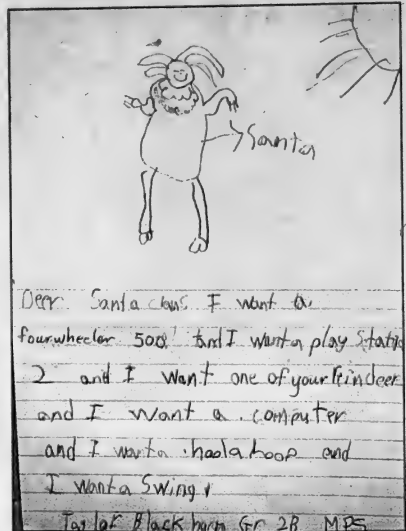 Santa
Deer Santa claus I want a
fourwheeler 500 and I want a play Statio
2 and I want one of your Reindeer
and I want a computer
and I want a hoola hoop and
I want a Swing
Taylor Blackhorn Gr 2B MPS